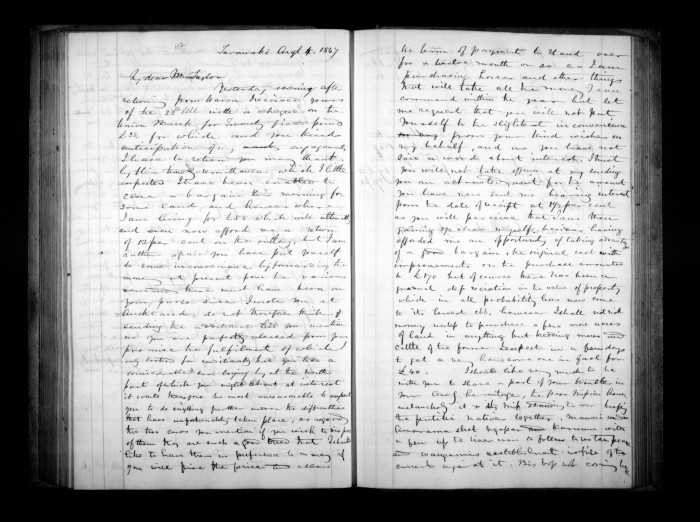 Augt 4. 1867
My dear Mr Taylor
Yesterday evening after
returning from received yours
of the 28 Ult with a cheque on the
Union Bank for Twenty five pounds
£25 for which and your kind
anticipation of my
I have to return you many thanks
by this timely remittance, which I little
expected I have been enabled to
close a bargain this morning for
some land and houses which
I am giving for £85 which will
and even now afford me a return
of 12 per cent on the outlay, but I am
rather afraid you have put yourself
to some inconvenience by forwarding the
money at present from the various
there must have been on
your purse since I wrote you at
Auckland, do not therefore think of
sending the £25 you mention
as you are perfectly released from your
promise the fulfilment of which
you has a
considerable sum laying by at the
part of which you might at interest
it would therefore be most unreasonable to expect
you to do anything further under the difficulties
that have unfortunately taken place, as regards
the two cows you mention if you wish to dispose
of them they are such a good breed that I should
like to have them in preference to money if
you will fix the price and allow
the term of payment to stand over
for a twelve month or so as I am
purchasing horses and other things
that will take all the money I can
command within the year but let
me request that you will not put
yourself to the slightest inconvenience
from your kind wishes on
my behalf, and as you have not
said a word about interest I trust
you will not take offence at my sending
you an acknowledgment for the amount
you have sent me bearing interest
from the date of receipt at per cent
as you will perceive that I am then
gaining myself, besides having
afforded me an opportunity of taking advantage
of a good bargain, the original cost with
improvements on the purchase amounted
to £170 but of course there has been a
general depreciation in the value of property
which in all probability has now come
to its lowest ebb, however I shall not risk
money unless to purchase a few more acres
of land in anything but breeding mares and
cattle of the former I expect in a few days
to get a very handsome one in foal for
£40. I should like very much to be
with you to share a part of your troubles in
your Hermitage, the poor
melancholy it is
the natives together,
shot with
a gun up to
establishment
correct against it. His boy not coming by